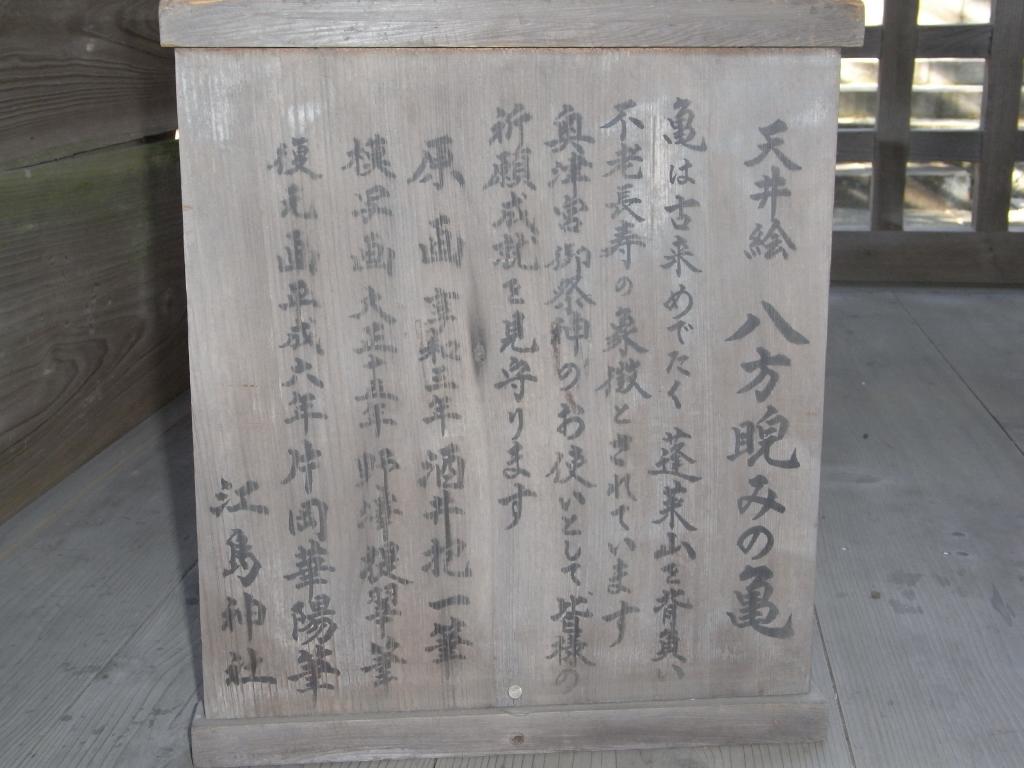 天井絵 八方睨みの亀
亀は古来めでたく 蓬莱山を背負い
不老長寿の象徴とされています
奥津宮御祭神のお使いとして皆様の
祈願成就を見守ります
原画 享和三年 酒井抱一筆
模泉画 大正十五年 野澤提翠筆
復元画平成六年片岡華陽筆
江島神社